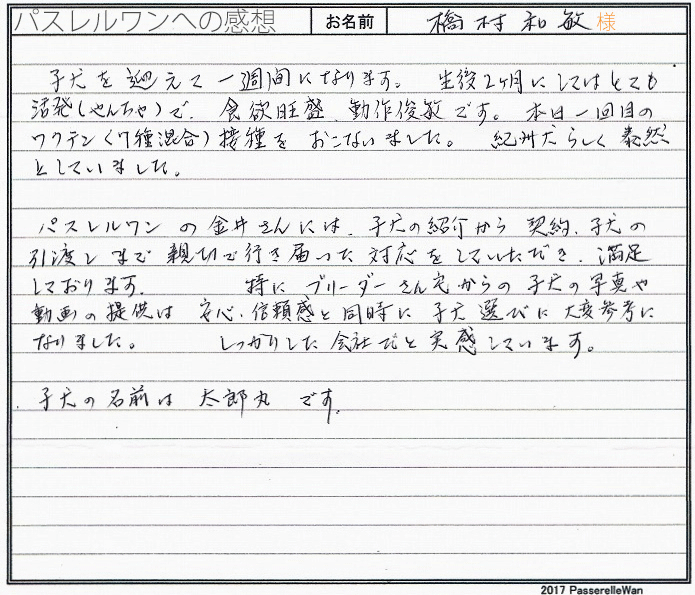 パスレルワンへの感想 お名前 橋村和敏 様
子犬を迎えて一週間になります。 生後2ヶ月にしてはとても
活発(やんちゃ)で、食欲旺盛、動作俊敏です。本日一回目の
ワクチン(7種混合)接種をおこないました。 紀州犬らしく泰然
としていました。
パスレルワンの金井さんには、子犬の紹介から契約、子犬の
引渡しまで親切で行き届いた対応をしていただき、満足
しております。 特にブリーダーさん宅からの子犬の写真や
動画の提供は安心・信頼感と同時に子犬選びに大変参考に
なりました。 しっかりした会社だと実感しています。
子犬の名前は 太郎丸 です。
2017 PasserelleWan